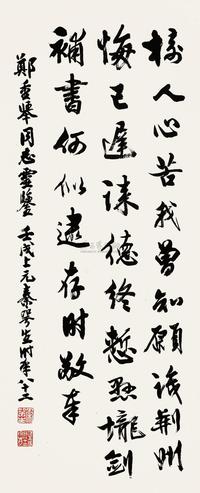 樹人心苦我曾知願識荊州
悔已遲誄德終慙懸壠劍
補書何似逮存時敬奉
鄭重舉同志靈鑒 壬戌上元秦咢生時年八十三